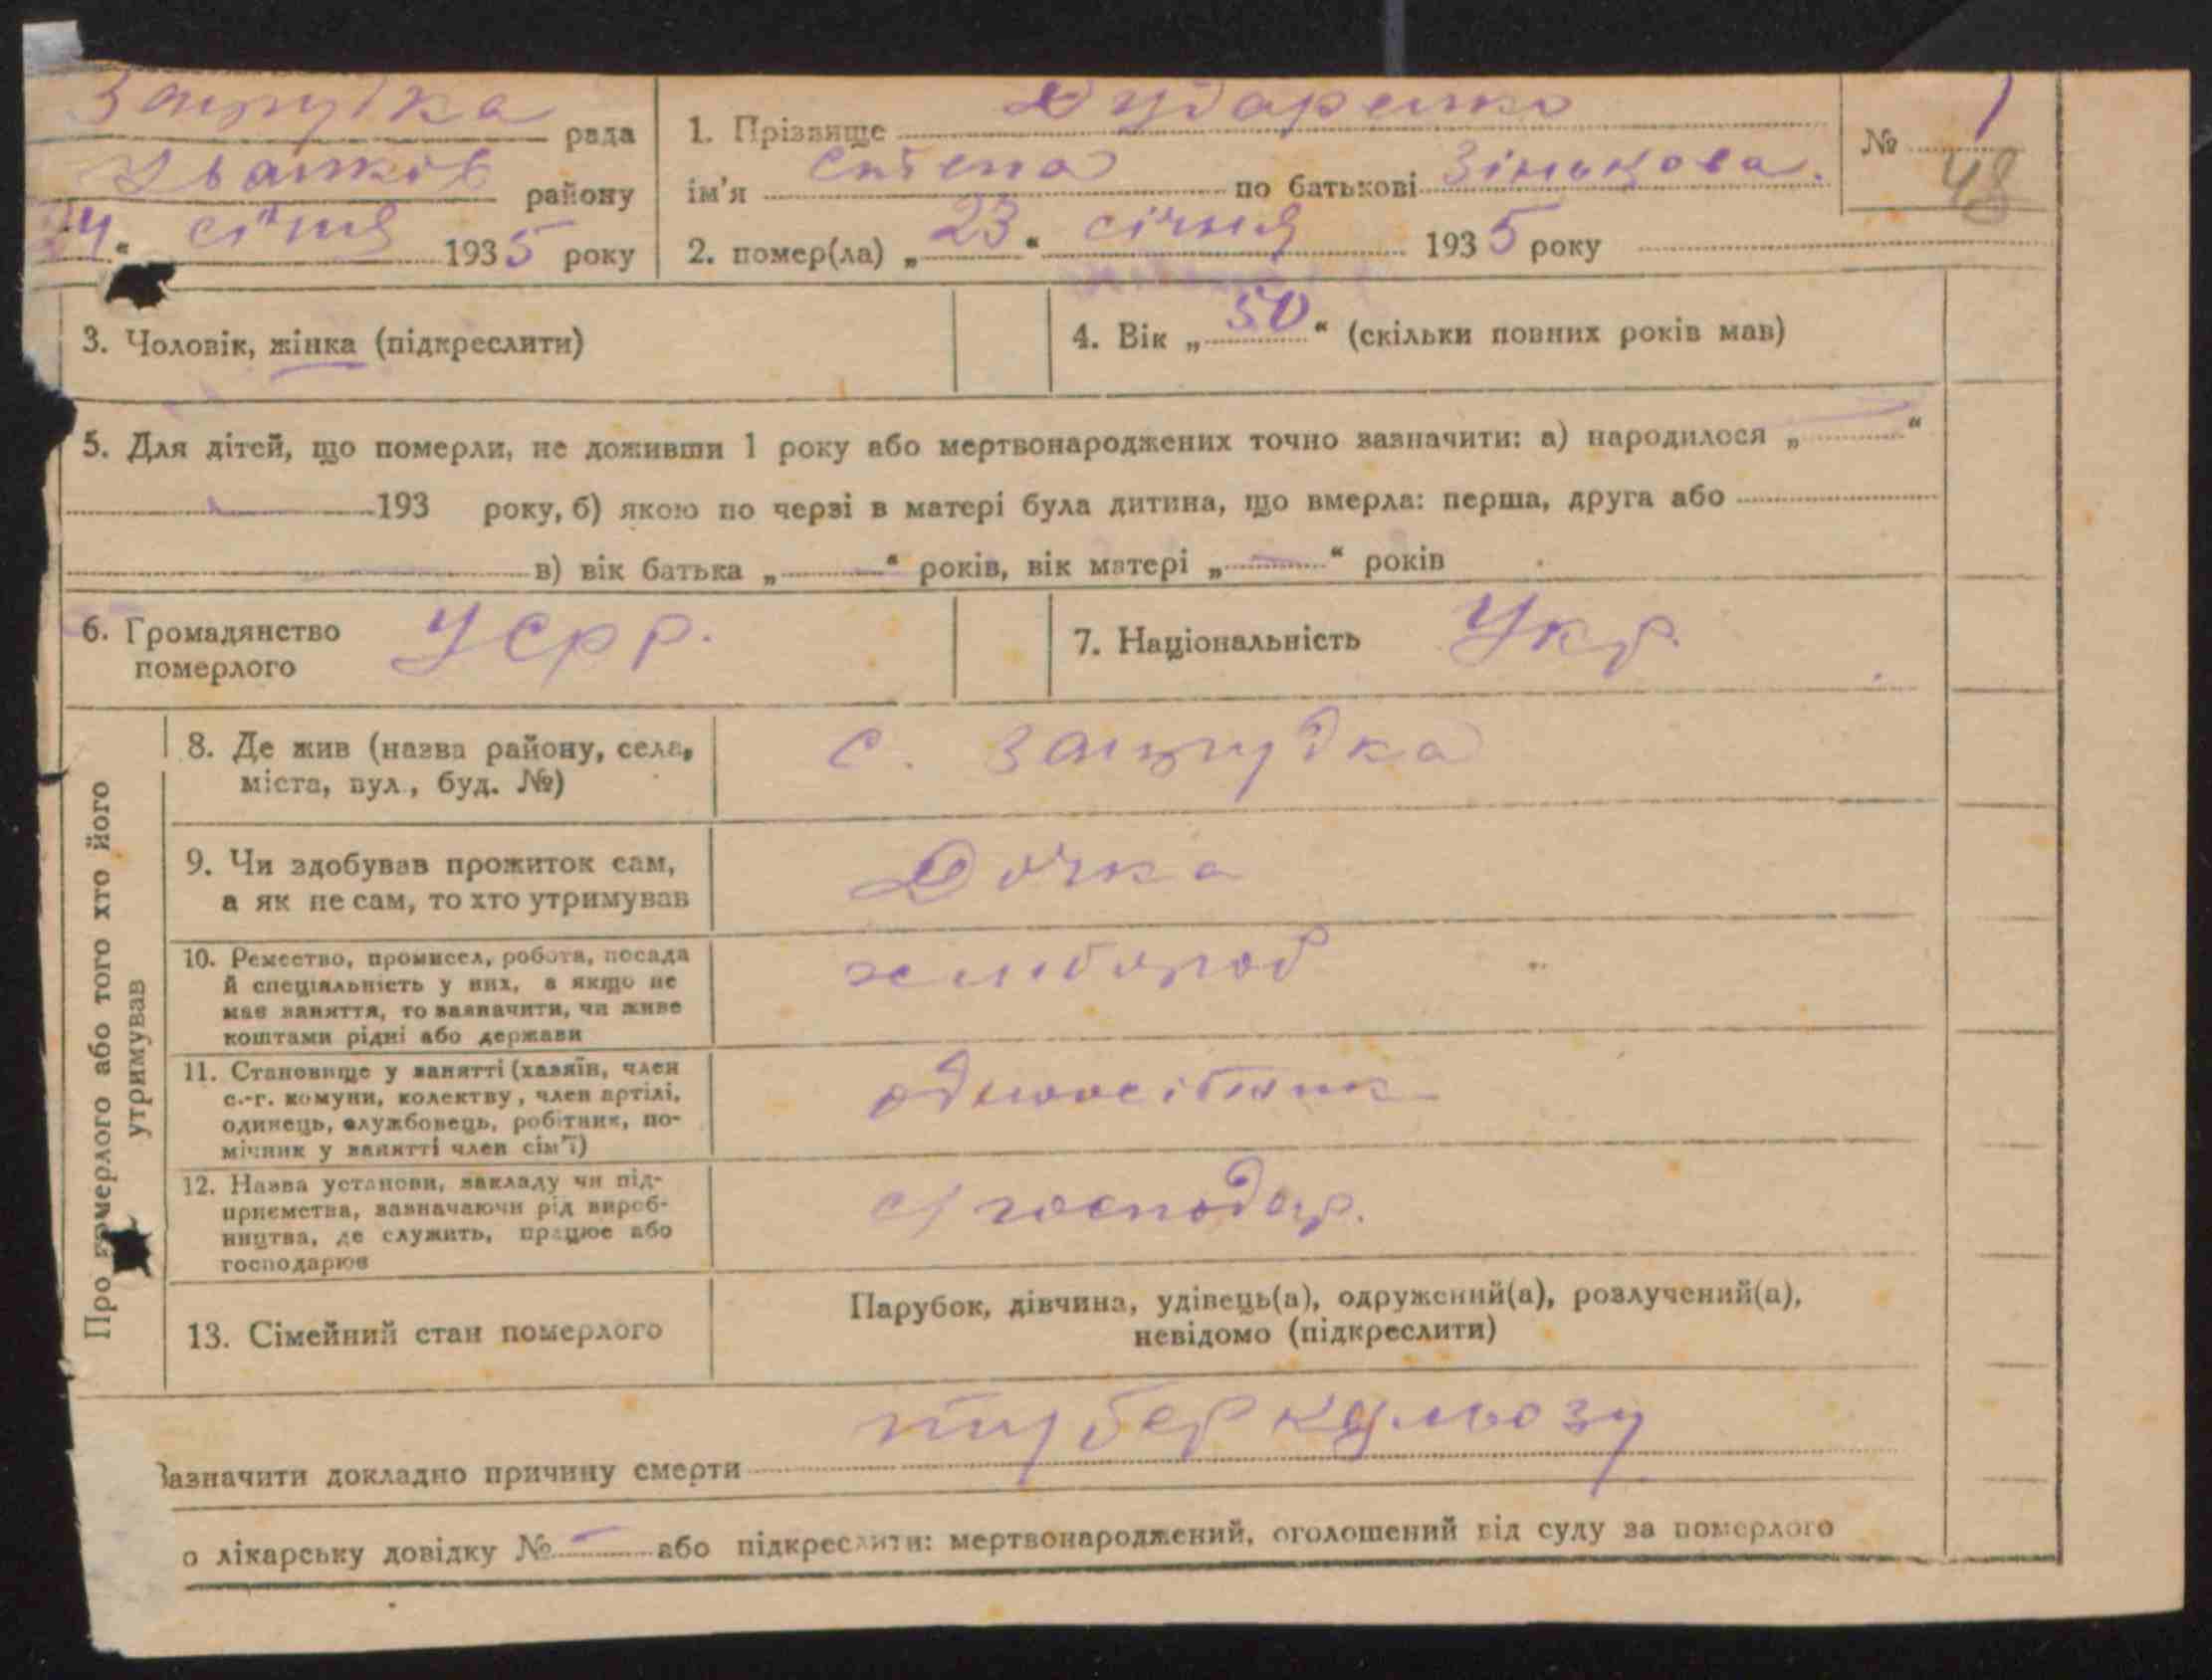 Запрудка рада
Іванків району
24 " січня 1935 року
1. Прізвище Дударенко
ім'я по батькові Зінькова.
2. помер(ла) „ 23 " січня 1935 року
№ 1
48
3. Чоловік, жінка (підкреслити)
4. Вік „ 50 " (скільки повних років мав)
5. Для дітей, що померли, не доживши 1 року або мертвонароджених точно зазначити: а) народилося „ — "
193 року, б) якою по черзі в матері була дитина, що вмерла: перша, друга або
в) вік батька „ " років, вік матері „ — " років
6. Громадянство
померлого
УСРР.
7. Національність Укр.
Про померлого або того хто його
утримував
8. Де жив (назва району, села,
міста, вул., буд. №)
с. Запрудка
9. Чи здобував прожиток сам,
а як не сам, то хто утримував
Дочка
10. Ремество, промисел, робота, посада
й спеціяльність у них, а якщо не
має заняття, то зазначити, чи живе
коштами рідні або держави
хлібороб
11. Становище у занятті (хазяїн, член
с.-г. комуни, колективу, член артілі,
одинець, службовець, робітник, по-
мічник у занятті член сім'ї)
одноосібник
12. Назва установи, закладу чи під-
приємства, зазначаючи рід вироб-
ництва, де служить, працює або
господарює
с/господар.
13. Сімейний стан померлого
Парубок, дівчина, удівець(а), одружений(а), розлучений(а),
невідомо (підкреслити)
Зазначити докладно причину смерти туберкульозу
о лікарську довідку № — або підкреслити: мертвонароджений, оголошений від суду за померлого